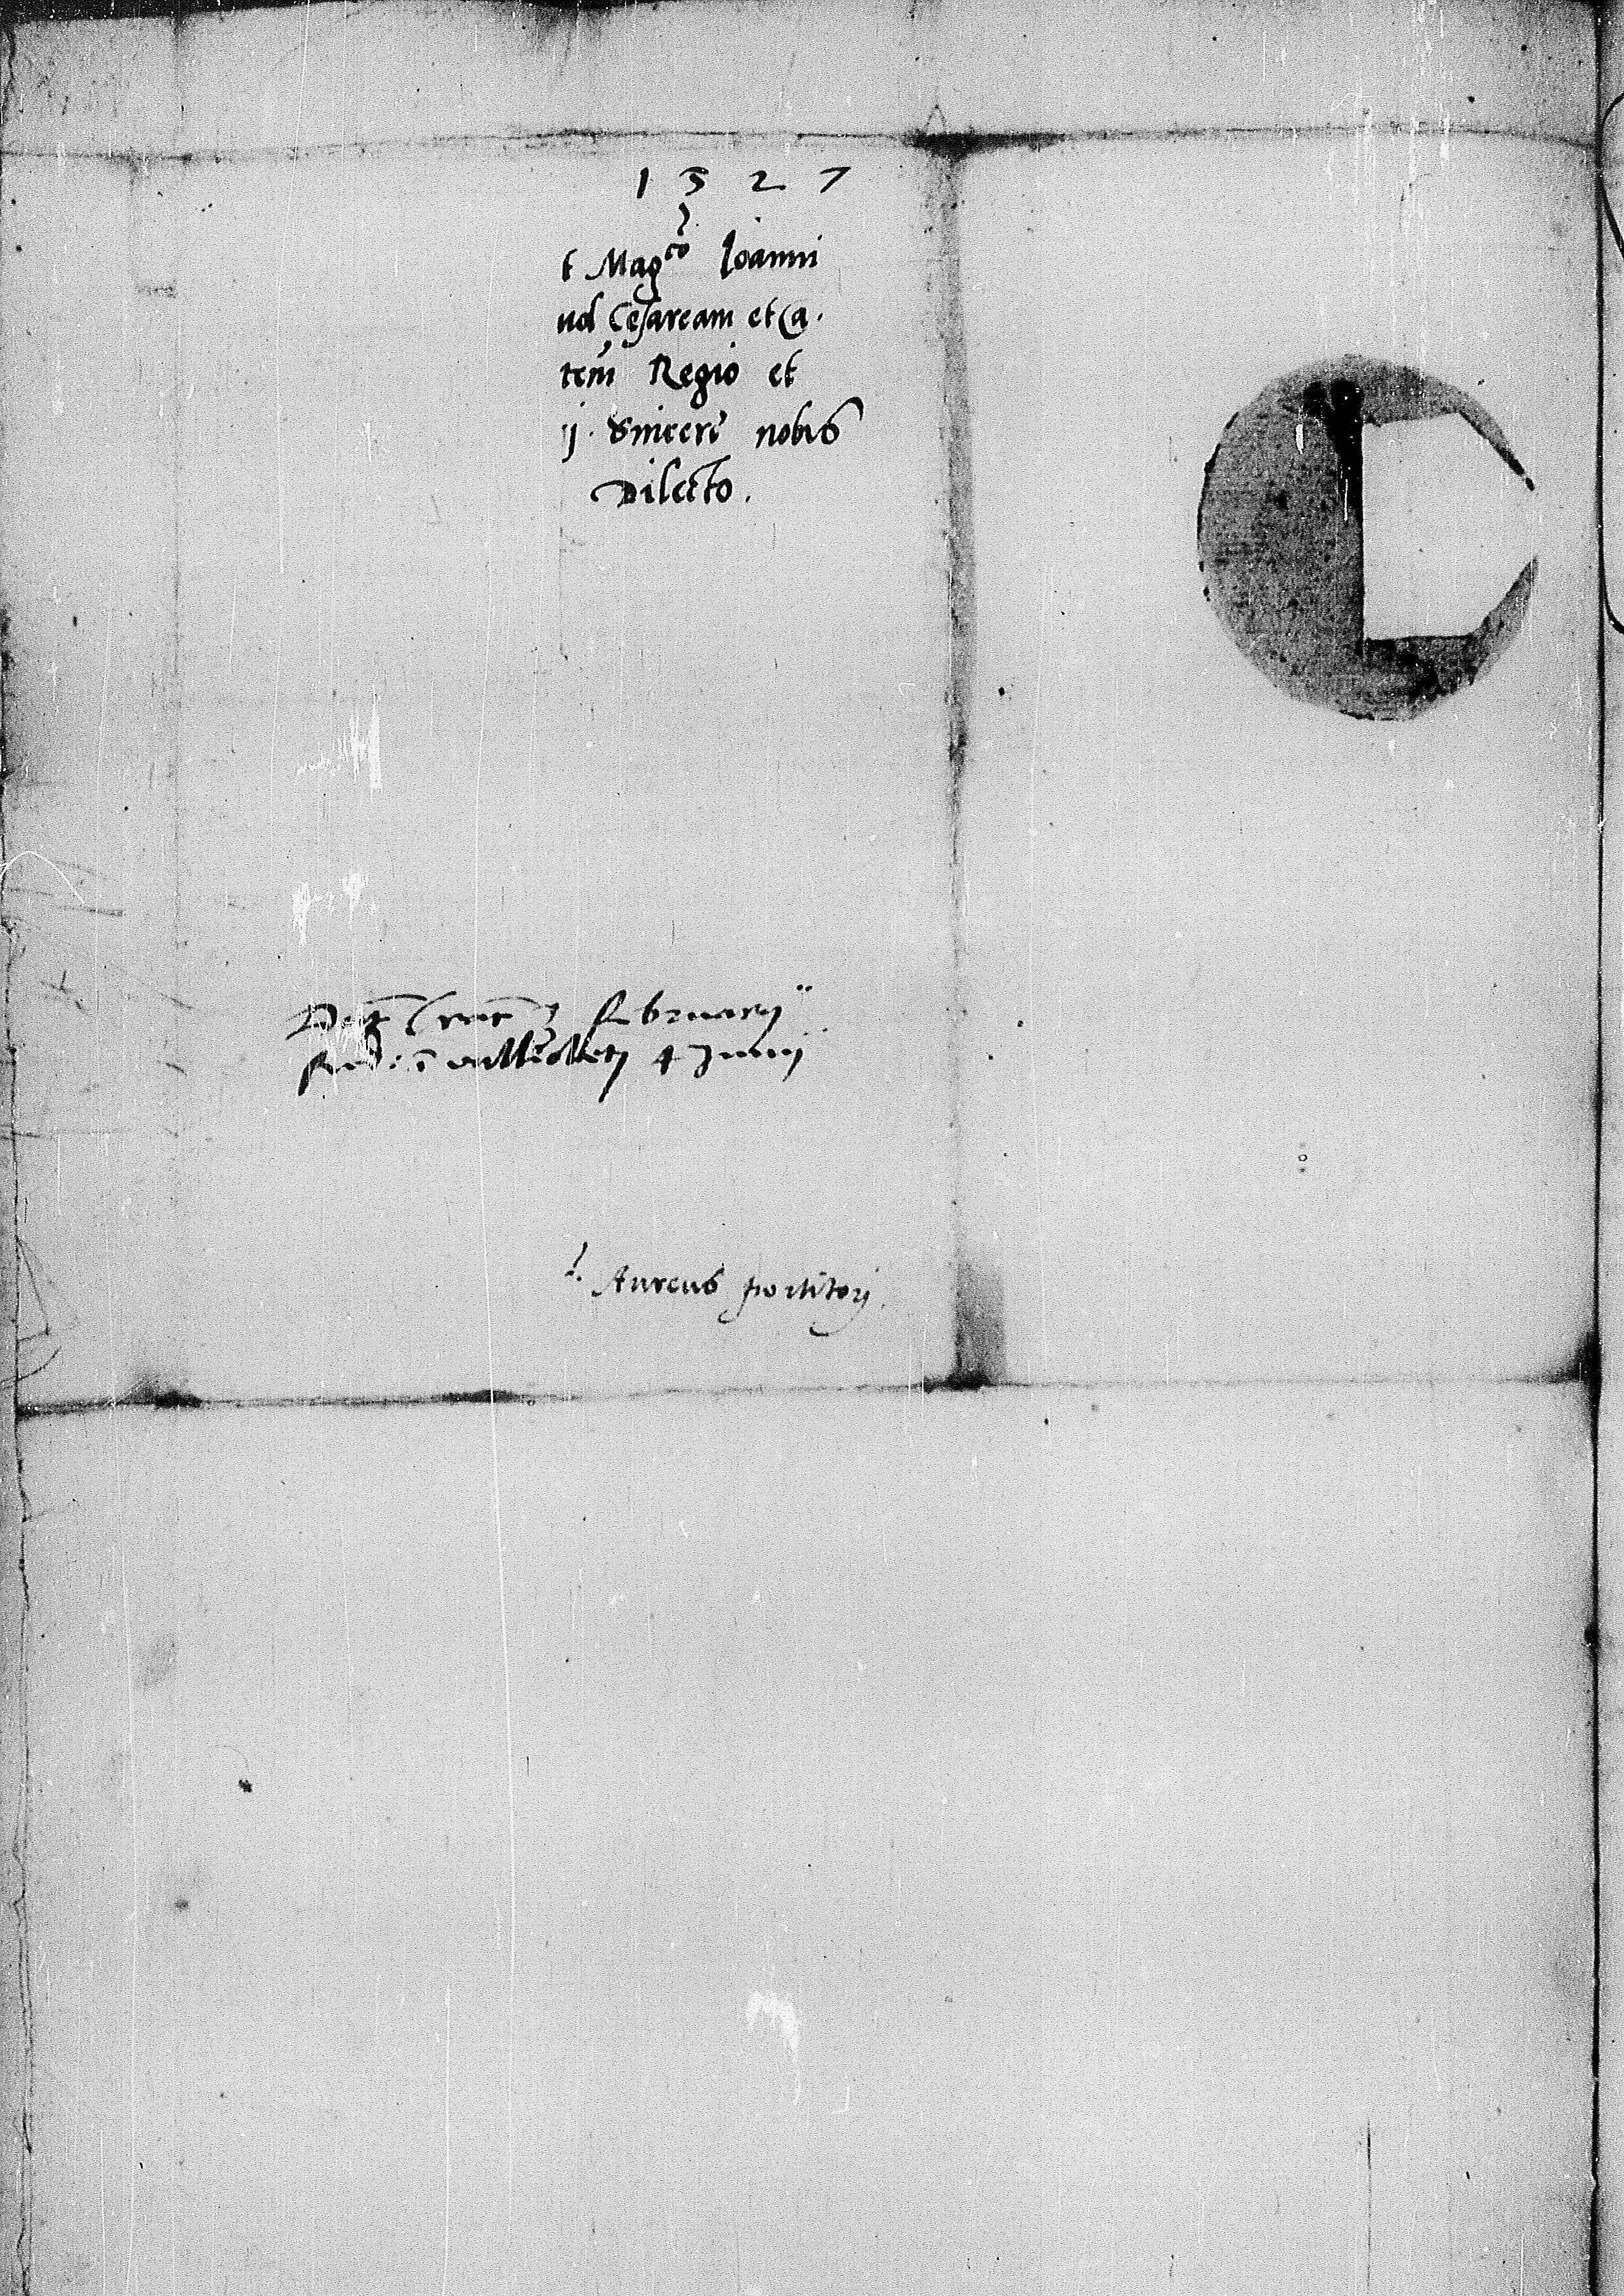 1527
t Magco Ioanni
ud Cesaream et Ca.
tem Regio et
ij. Sincere nobis
Dilecto.
Februarij
vallisoleti 4 Junij
1. Aureus portitorj.